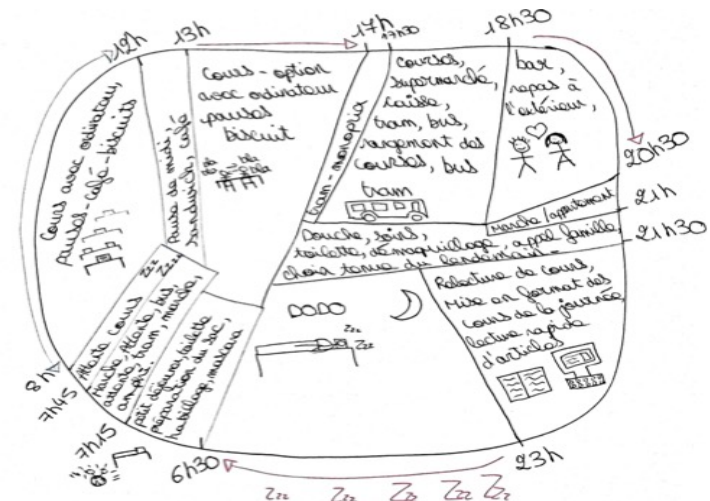 12h
13h
17h
17h30
18h30
20h30
21h
21h30
23h
6h30
7h15
7h45
8h
Cours avec ordinateur,
pauses-café-biscuits
Pause de midi,
sandwich, café
Cours - option
avec ordinateur
pauses
biscuit
tram-monoprix
courses,
supermarché,
caisse,
tram, bus,
rangement des
courses, bus
tram
bar,
repas à
l'extérieur,
Marche/appartement
Douche, soins,
toilette, démaquillage, appel famille,
choix tenue du lendemain
Relecture de cours,
Mise en format des
cours de la journée,
lecture rapide
d'articles
DODO
Zzz
Petit déjeuner, toilette
préparation du sac,
habillage, mascara
Marche, Attente, bus,
attente, tram, marche,
amphi
Attente cours
Zzz
Zzz Zzz Zzz Zzz Zzz